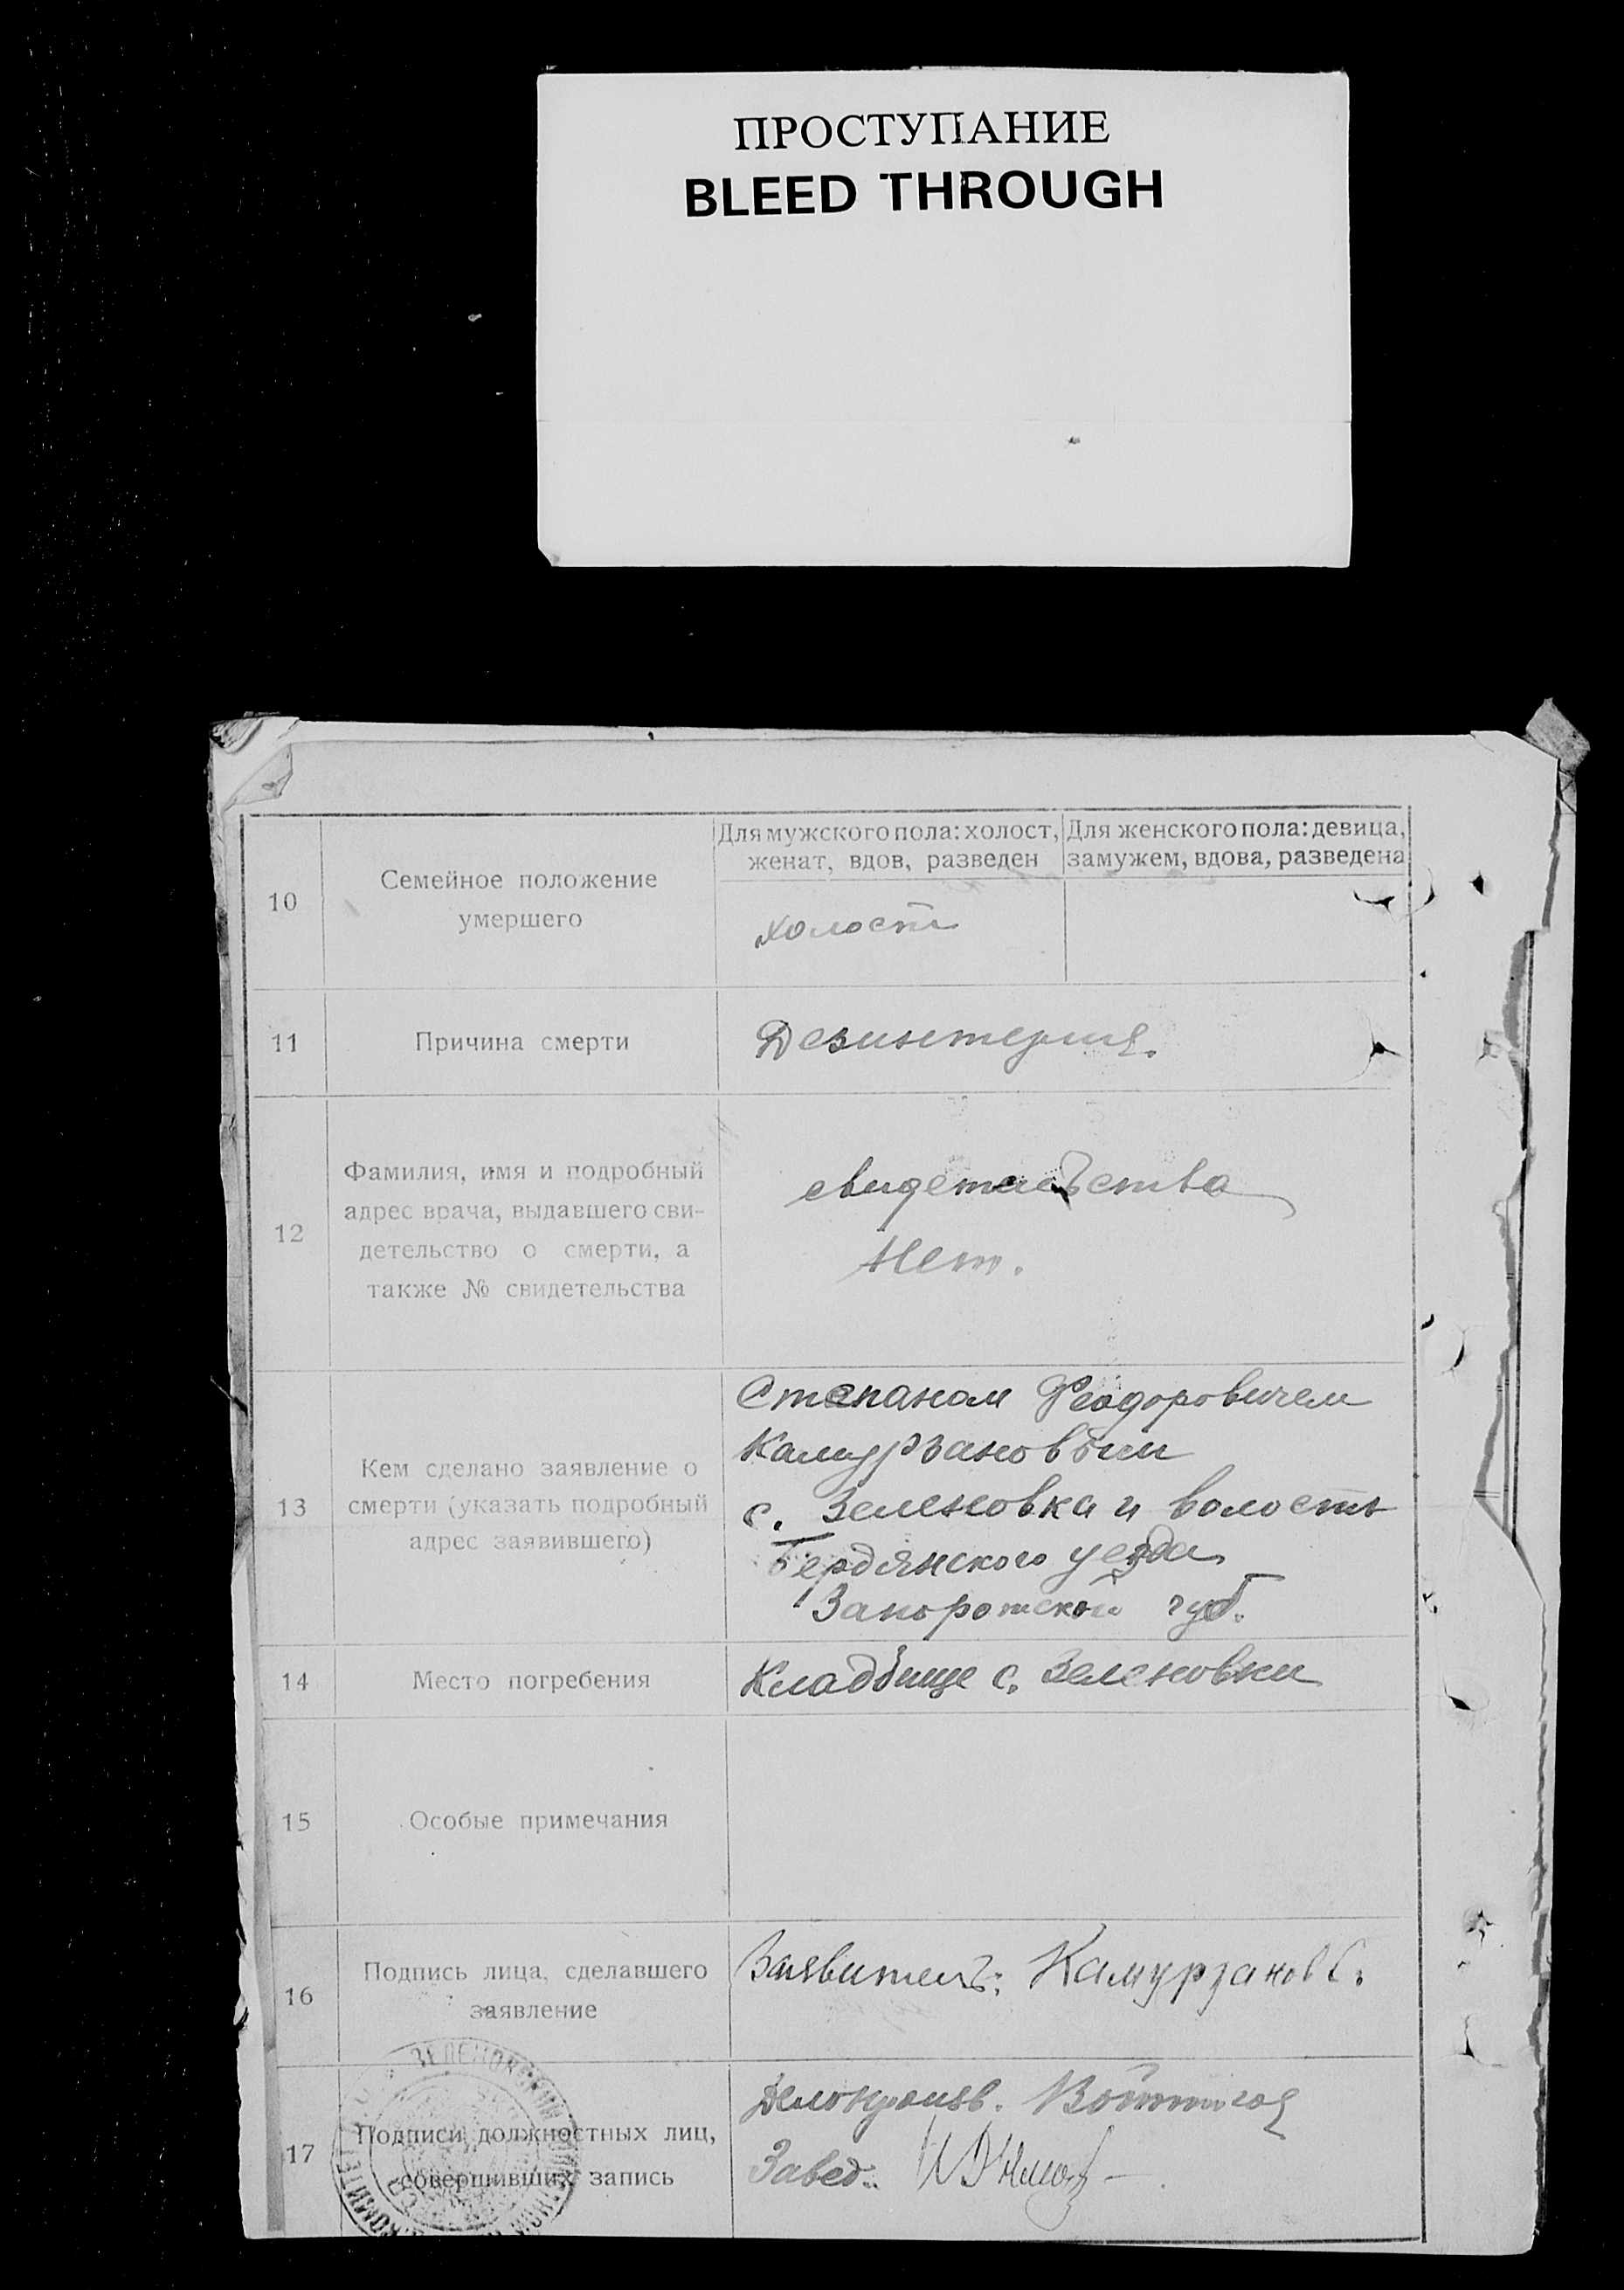 ПРОСТУПАНИЕ
BLEED THROUGH
10
Семейное положение
умершего
Для мужского пола: холост,
женат, вдов, разведен
Для женского пола: девица,
замужем, вдова, разведена
холост
11
Причина смерти
Дезинтерия.
12
Фамилия, имя и подробный
адрес врача, выдавшего сви-
детельство о смерти, а
также № свидетельства
свидетельства
Нет.
13
Кем сделано заявление о
смерти (указать подробный
адрес заявившего)
Степаном Феодоровичем
Камурзановым
с. Зеленовка и волость
Бердянского уезда
Запорожской губ.
14
Место погребения
Кладбище с. Зеленовки
15
Особые примечания
16
Подпись лица, сделавшего
заявление
Заявитель: Камурзанов С.
17
Подписи должностных лиц,
совершивших запись
Делопроизв.
Завед.
ЗЕЛЕНОВСКИЙ